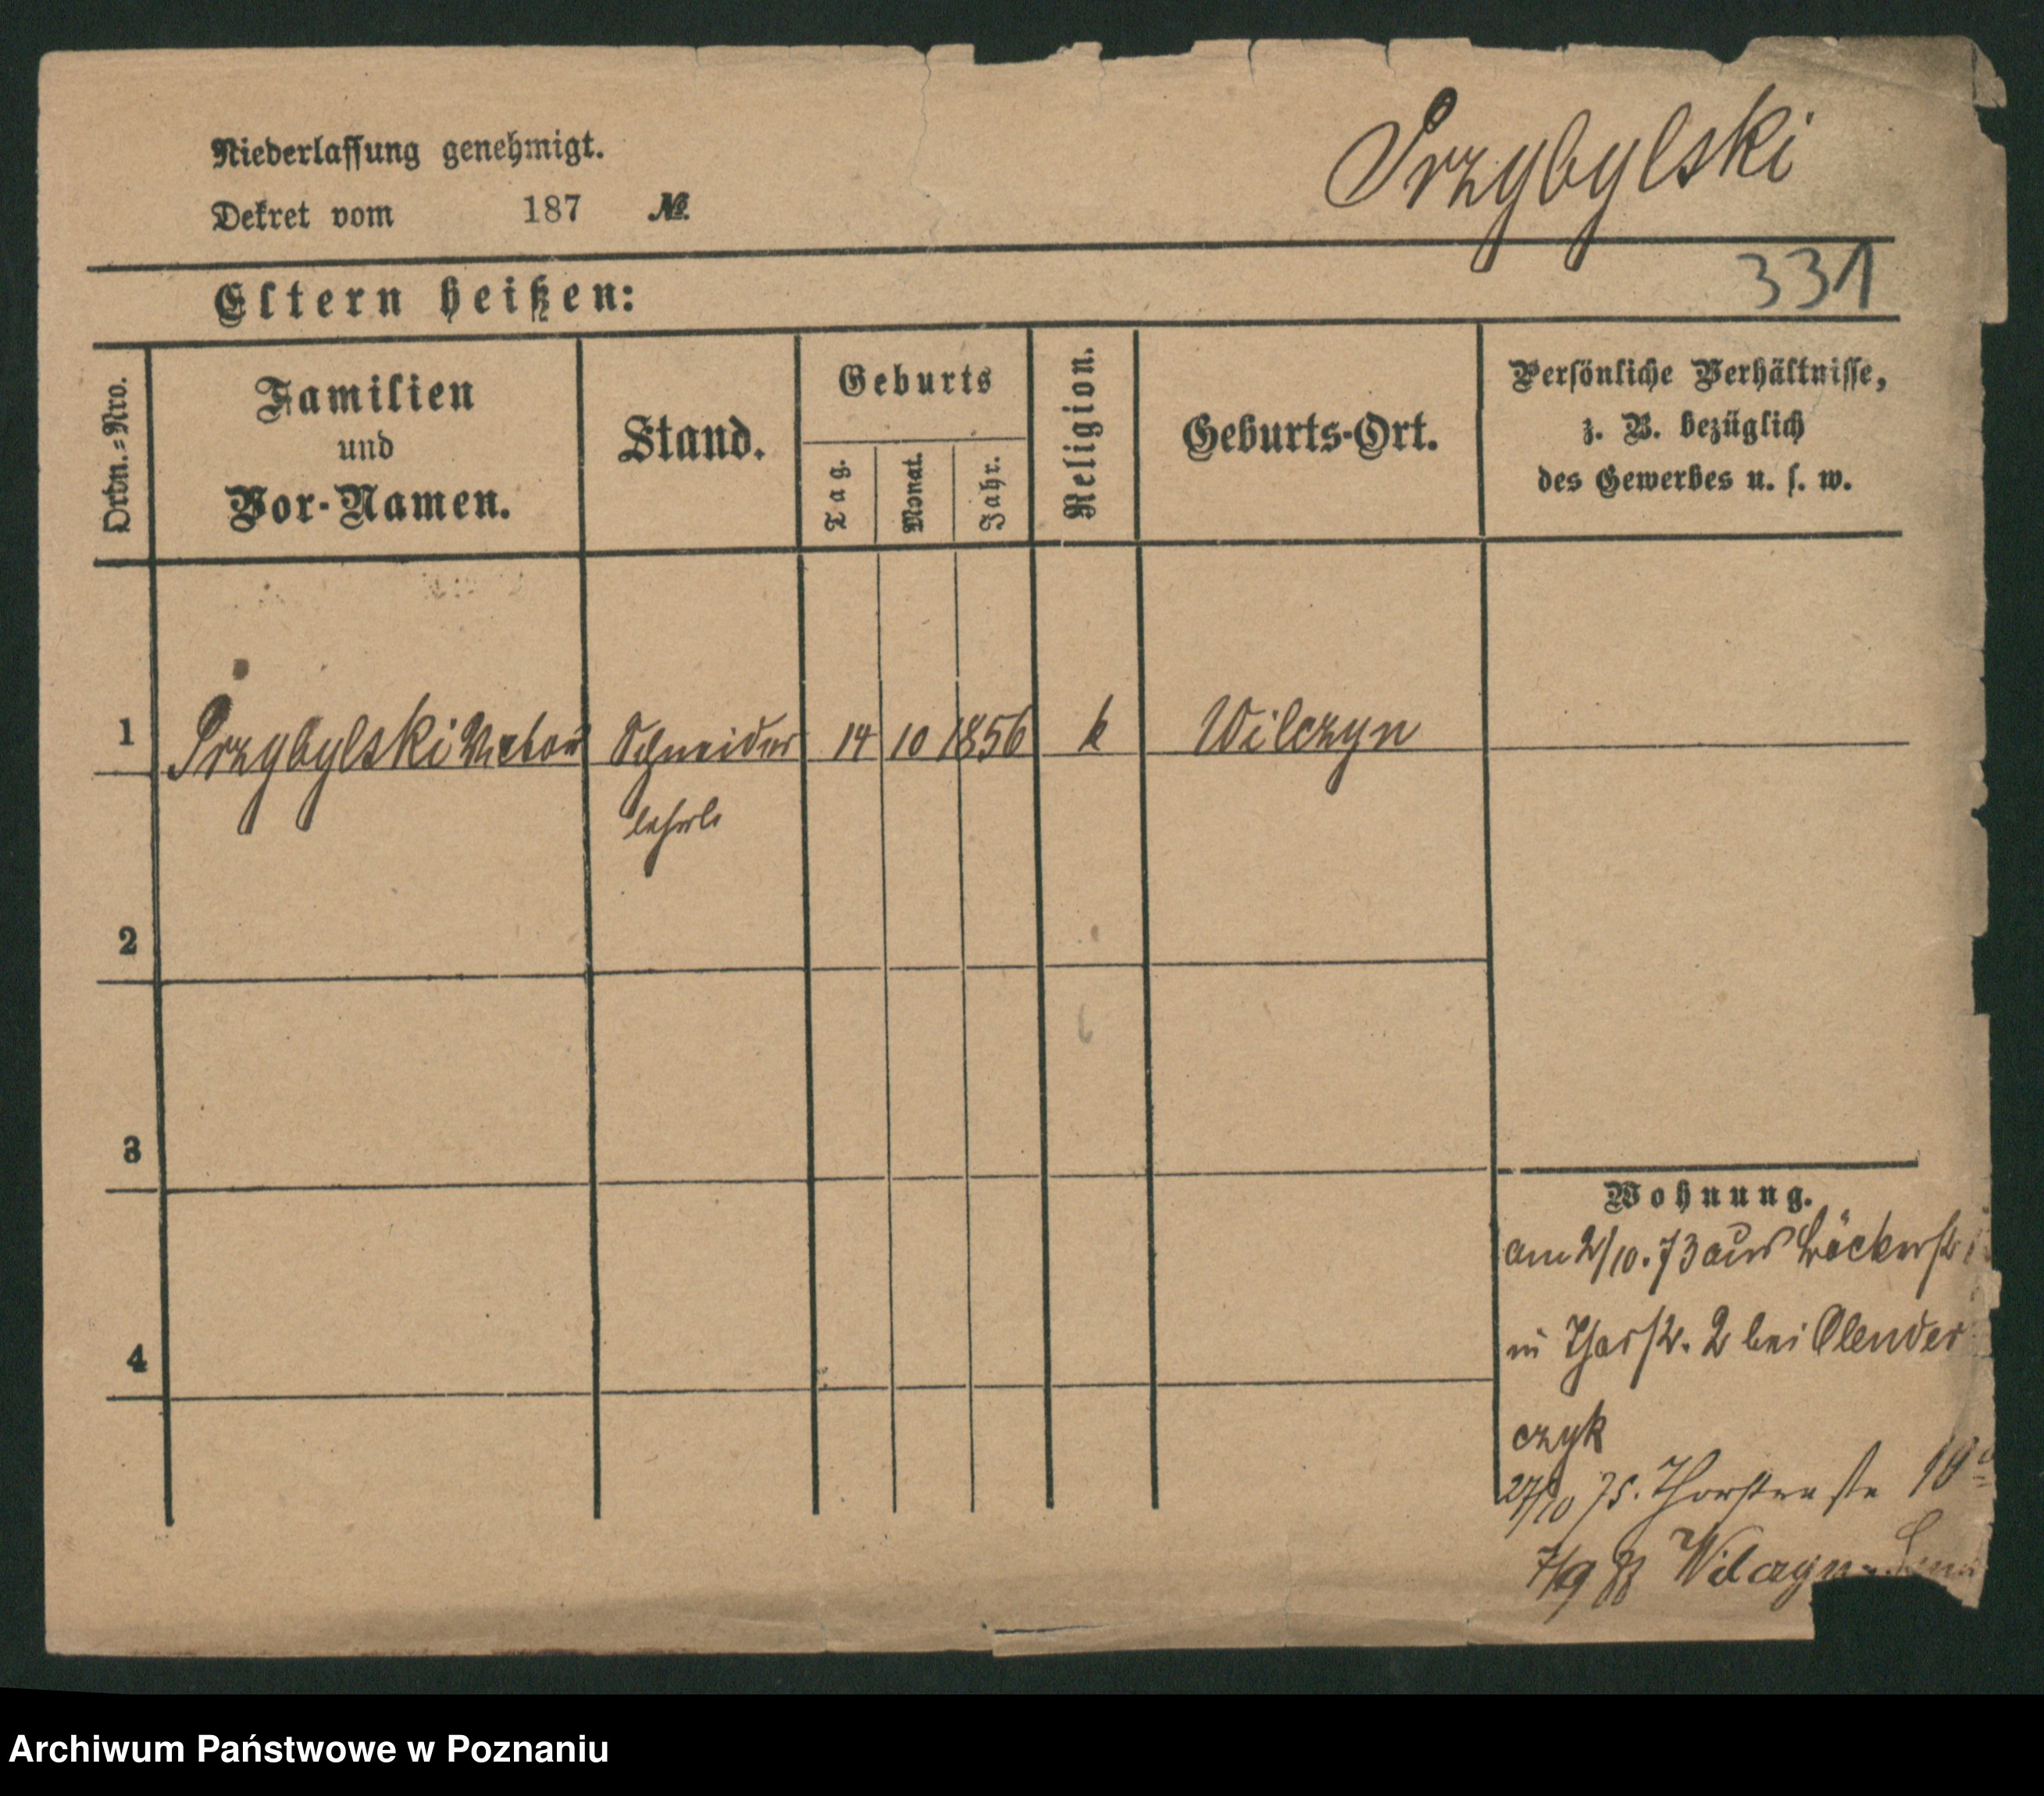 Niederlassung genehmigt.
Dekret vom 187 №
Przybylski
331
Eltern heißen:
Ordn.=Nro.
Familien
und
Vor-Namen.
Stand.
Geburts
Tag.
Monat.
Jahr.
Religion.
Geburts-Ort.
Persönliche Verhältnisse,
z. B. bezüglich
des Gewerbes u. s. w.
1 Przybylski Victor Schneider 14 10 1856 k Wilczyn
lehrl
2
3
4
Wohnung.
am 2/10. 73 aus Bäckerstr
in Thorstr. 2 bei Olender
czyk
27/10 75. Thorstrasse 10
7/9 Wilczyn
Archiwum Państwowe w Poznaniu